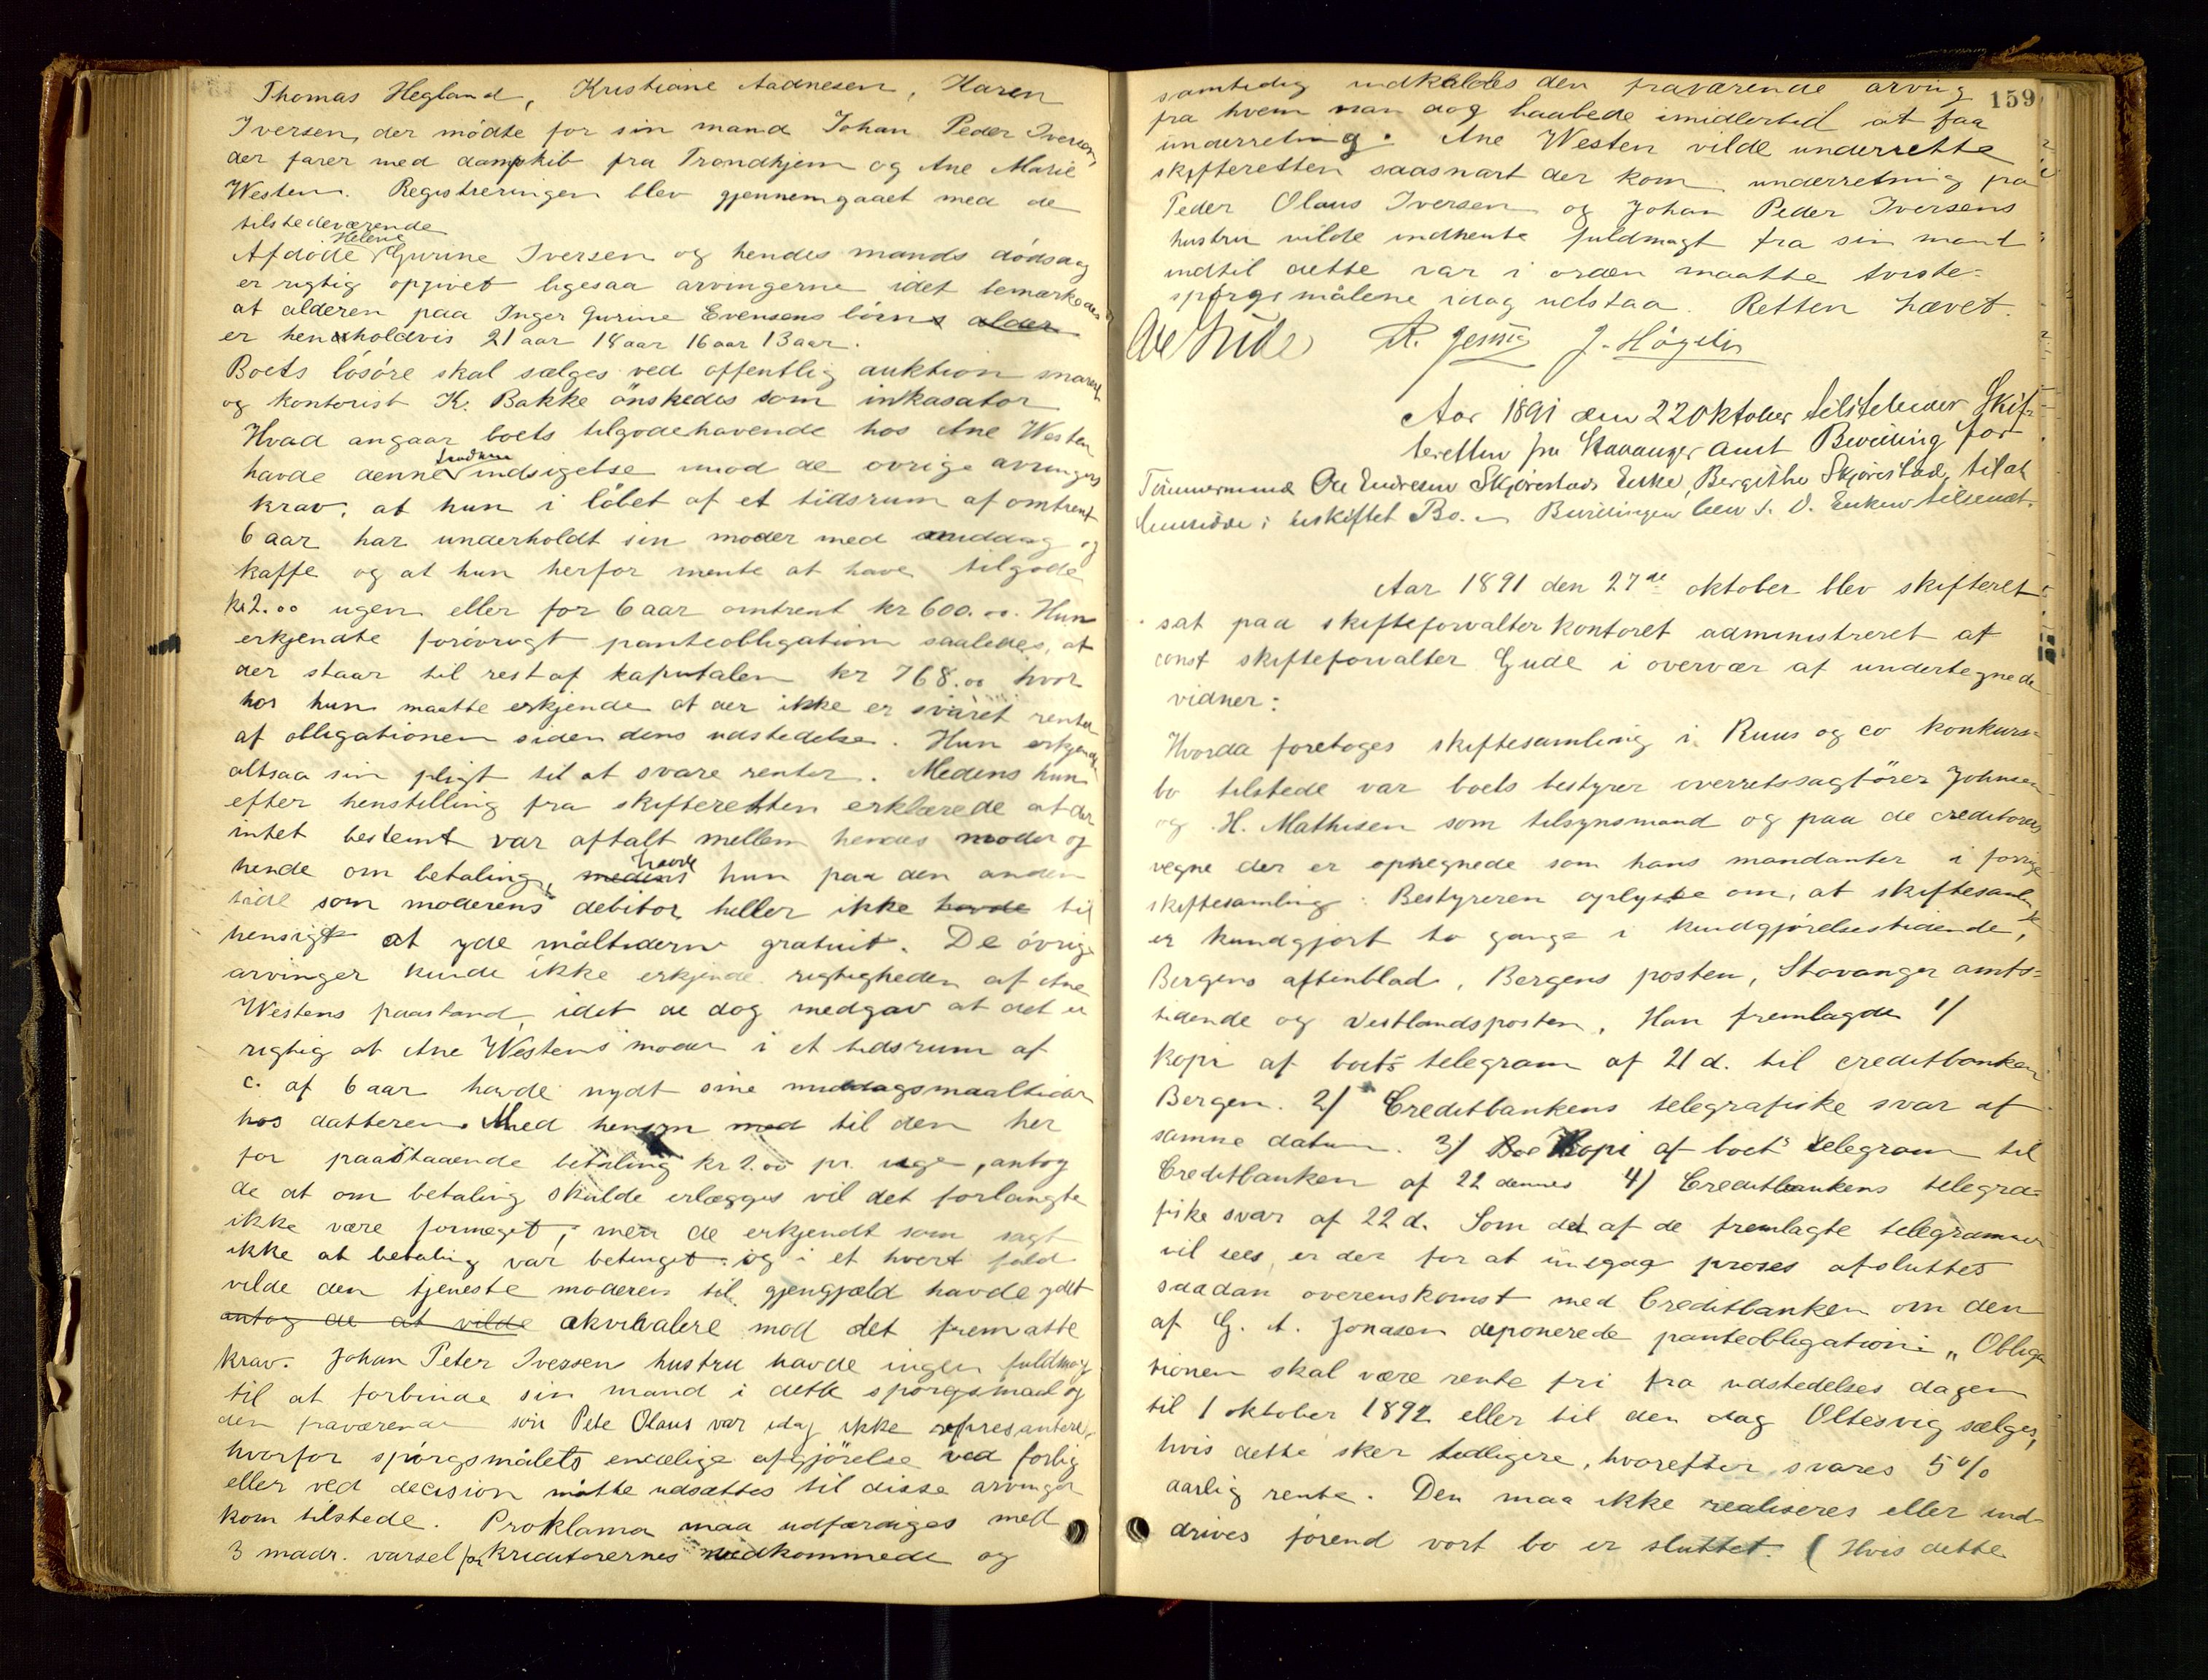 Thomas Hegland, Kristiane Aadnesen, Karen
Iversen, der mödte for sin mand Johan Peder Iversen,
der farer med dampskib fra Trondhjem og Ane Marie
Westen. Registreringen blev gjennemgaaet med de
tilstedeværende
Helene
Afdöde Gurine Iversen og hendes mands dödsdag
er rigtig opgivet ligesaa arvingerne idet bemærkedes
at alderen paa Inger Gurine Evensens börns alder
er henholdvis 21 aar 18 aar 16 aar 13 aar.
Boets lösöre skal sælges ved offentlig auktion snarest
og kontorist K. Bakke önskedes som inkasator
Hvad angaar boets tilgodehavende hos Ane Westen
havde denne indsigelse mod de ovrige arvingers
krav, at hun i löbet af et tidsrum af omtrent
6 aar har underholdt sin moder med middag og
kaffe og at hun herfor mente at have tilgode
kr 2.00 ugen eller for 6 aar omtrent kr 600.00. Hun
erkjendte forövrigt panteobligation saaledes, at
der staar til rest af kapitalen kr 768.00 hvor
hos hun maatte erkjende at der ikke er svaret renter
af obligationen siden dens udstedelse. Hun erkjendte
altsaa sin pligt til at svare renter. Medens hun
efter henstilling fra skifteretten erklærede at der
intet bestemt var aftalt mellem hendes moder og
havde
hende om betaling, medens hun paa den anden
side som moderens debitor heller ikke havde til
hensigt at yde måltiderne gratuit. De övrige
arvinger kunde ikke erkjende rigtigheden af Ane
Westens paastand, idet de dog medgav at det er
rigtig at Ane Westens moder i et tidsrum af
c. af 6 aar havde nydt sine middagsmaaltider
hos datteren. Med hensyn med til den her
for paastaaende betaling kr 2.00 pr. uge, antog
de at om betaling skulde erlægges vil det forlangte
ikke være formeget, men de erkjendt som sagt
ikke at betaling var betinget og i et hvert fald
vilde den tjeneste moderen til gjengjæld havde ydet
antog de at vilde ækvivalere mod det fremsatte
krav. Johan Peter Iversen hustru havde ingen fuldmagt
til at forbinde sin mand i dette spörgsmaal og
den fraværende sön Pete Olaus var idag ikke representeret,
hvorfor spörgsmålets endelige afgjörelse ved forlig
eller ved decision måtte udsættes til disse arvinger
kom tilstede. Proklama maa udfærdiges med
3 madr. varsel for kreditorernes vedkommede og
159
samtidig indkaldes den fraværende arving
fra hvem man dog haabede imidlertid at faa
underretning. Ane Westen vilde underrette
skifteretten saasnart der kom underretning fra
Peder Olaus Iversen og Johan Peder Iversens
hustru vilde indhente fuldmagt fra sin mand
indtil dette var i orden maatte tviste-
spörgsmålene idag udstaa. Retten hævet.
J. Högeli
Aar 1891 den 22 Oktober tilstilledes Skif-
teretten fra Stavanger Amt Bevilling for
Tömmermand Ole Endresen Skjörestads Enke, Bergithe Skjörestad, til at
hensidde i uskiftet Bo. – Bevillingen blev s. D. Enken tilsendt.
Aar 1891 den 27de oktober blev skifteret
sat paa skifteforvalter kontoret administreret af
const skifteforvalter Gude i overvær af undertegnede
vidner:
Hvorda foretoges skiftesamling i Ruus og co konkurs-
bo tilstede var boets bestyrer overretssagförer Johnsen
og H. Mathisen som tilsynsmand og paa de creditorers
vegne der er opregnede som hans mandanter i forrige
skiftesamling: Bestyreren oplyste om, at skiftesamlingen
er kundgjort to gange i Kundgjörelsestidende,
Bergens aftenblad, Bergens posten, Stavanger amts-
tidende og Vestlandsposten. Han fremlagde 1/
kopi af boets telegram af 21 d. til creditbanken
Bergen. 2/ Creditbankens telegrafiske svar af
samme datum. 3/ Boe Kopi af boets telegram til
Creditbanken af 22 dennes 4/ Creditbankens telegra-
fiske svar af 22 d. Som det af de fremlagte telegrammer
vil sees, er der for at undgaa proces afsluttet
saadan overenskomst med Creditbanken om den
af G. A. Jonasen deponerede panteobligation: „Obliga
tionen skal være rente fri fra udstedelses dagen
til 1 oktober 1892 eller til den dag Oltesvig sælges,
hvis dette sker tidligere, hvorefter svares 5%
aarlig rente. Den maa ikke realiseres eller ind-
drives förend vort bo er sluttet. (Hvis dette